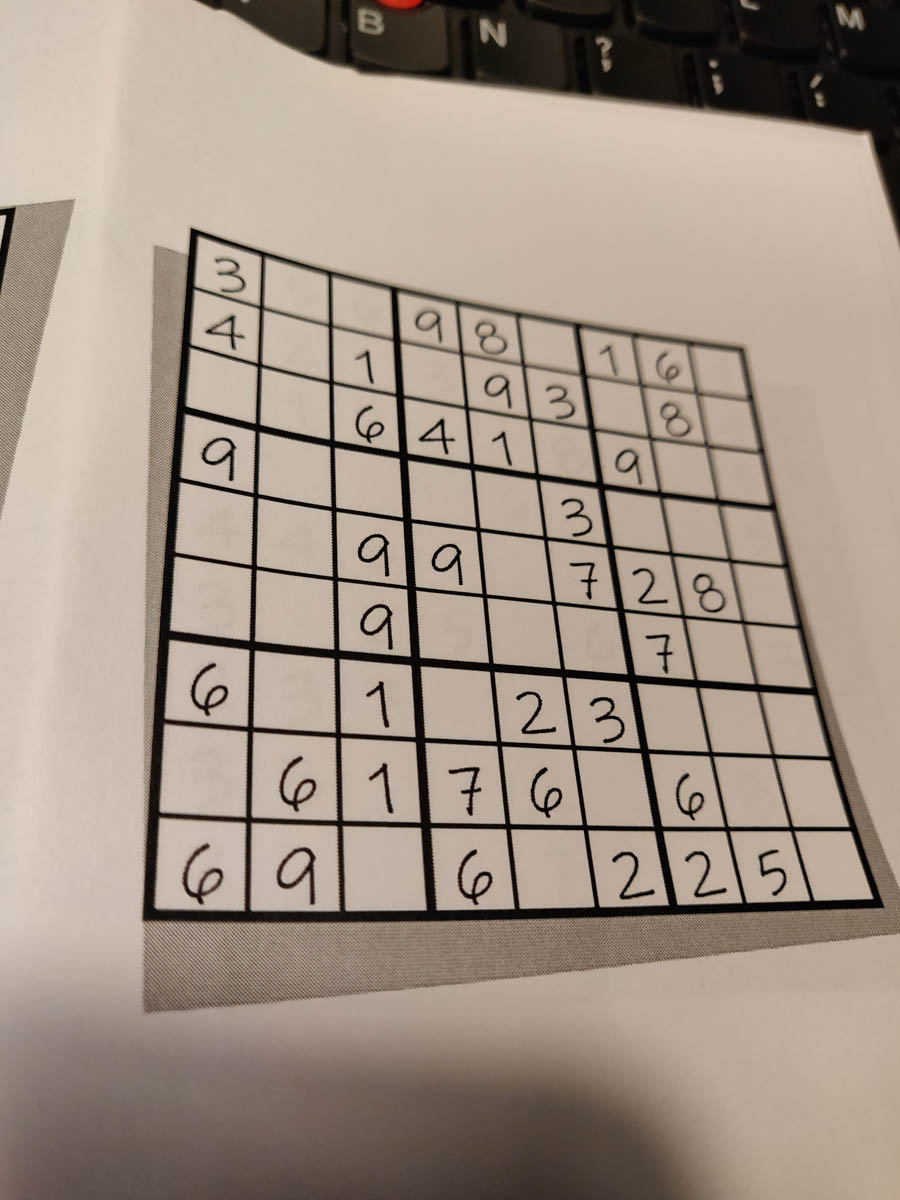 B N M
? ;
, :
3 9 8 1 6
4 1 9 3 8
6 4 1 9
9 3
9 9 7 2 8
9 7
6 1 2 3
6 1 7 6 6
6 9 6 2 2 5